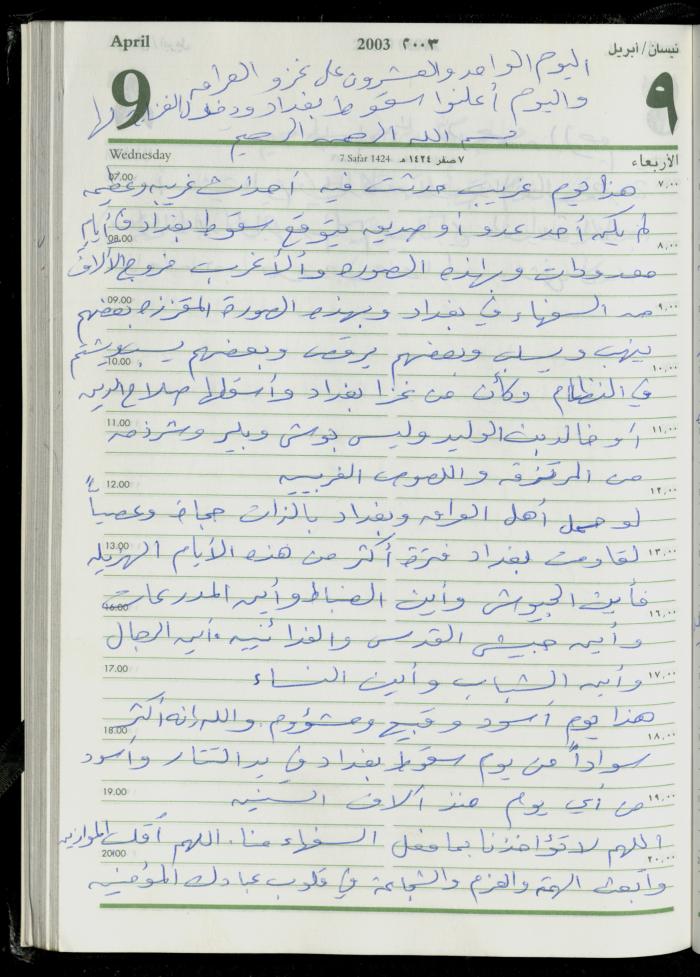 April 2003 ٢٠٠٣ نيسان / أبريل
اليوم الواحد والعشرون على غزو العراق
9 واليوم أعلنوا سقوط بغداد ودخول الغزاة لها ٩
بسم الله الرحمن الرحيم
Wednesday 7 Safar 1424 ٧ صفر ١٤٢٤ هـ الأربعاء
07.00 هذا يوم غريب حدثت فيه أحداث غريبة وعظيمة ٧,٠٠
لم يكن أحد عدو أو صديق يتوقع سقوط بغداد في أيام
08.00 ٨,٠٠
معدودات وبهذه الصورة والأغرب خروج الآلاف
09.00 من السفهاء في بغداد وبهذه الصورة المقززة بعضهم ٩,٠٠
ينهب ويسلب وبعضهم يرقص وبعضهم يسب ويشتم
10.00 ١٠,٠٠
في النظام وكأن من غزا بغداد وأسقطها صلاح الدين
11.00 أو خالد بن الوليد وليس بوش وبلير وشرذمة ١١,٠٠
من المرتزقة واللصوص الغربيين
12.00 ١٢,٠٠
لو حمل أهل العراق وبغداد بالذات حجارة وعصياً
13.00 لقاومت بغداد فترة أكثر من هذه الأيام الهزيلة ١٣,٠٠
فأين الجيوش وأين الضباط وأين المدرعات
16.00 ١٦,٠٠
وأين جيش القدس والفدائيين وأين الرجال
17.00 وأين الشباب وأين النساء ١٧,٠٠
هذا يوم أسود وقبيح ومشؤوم والله إنه أكثر
18.00 ١٨,٠٠
سواداً من يوم سقوط بغداد في يد التتار وأسود
19.00 من أي يوم منذ آلاف السنين ١٩,٠٠
اللهم لا تؤاخذنا بما فعل السفهاء منا. اللهم أقلب الموازين
20.00 ٢٠,٠٠
وأبعث الهمة والعزم والشجاعة في قلوب عبادك المؤمنين